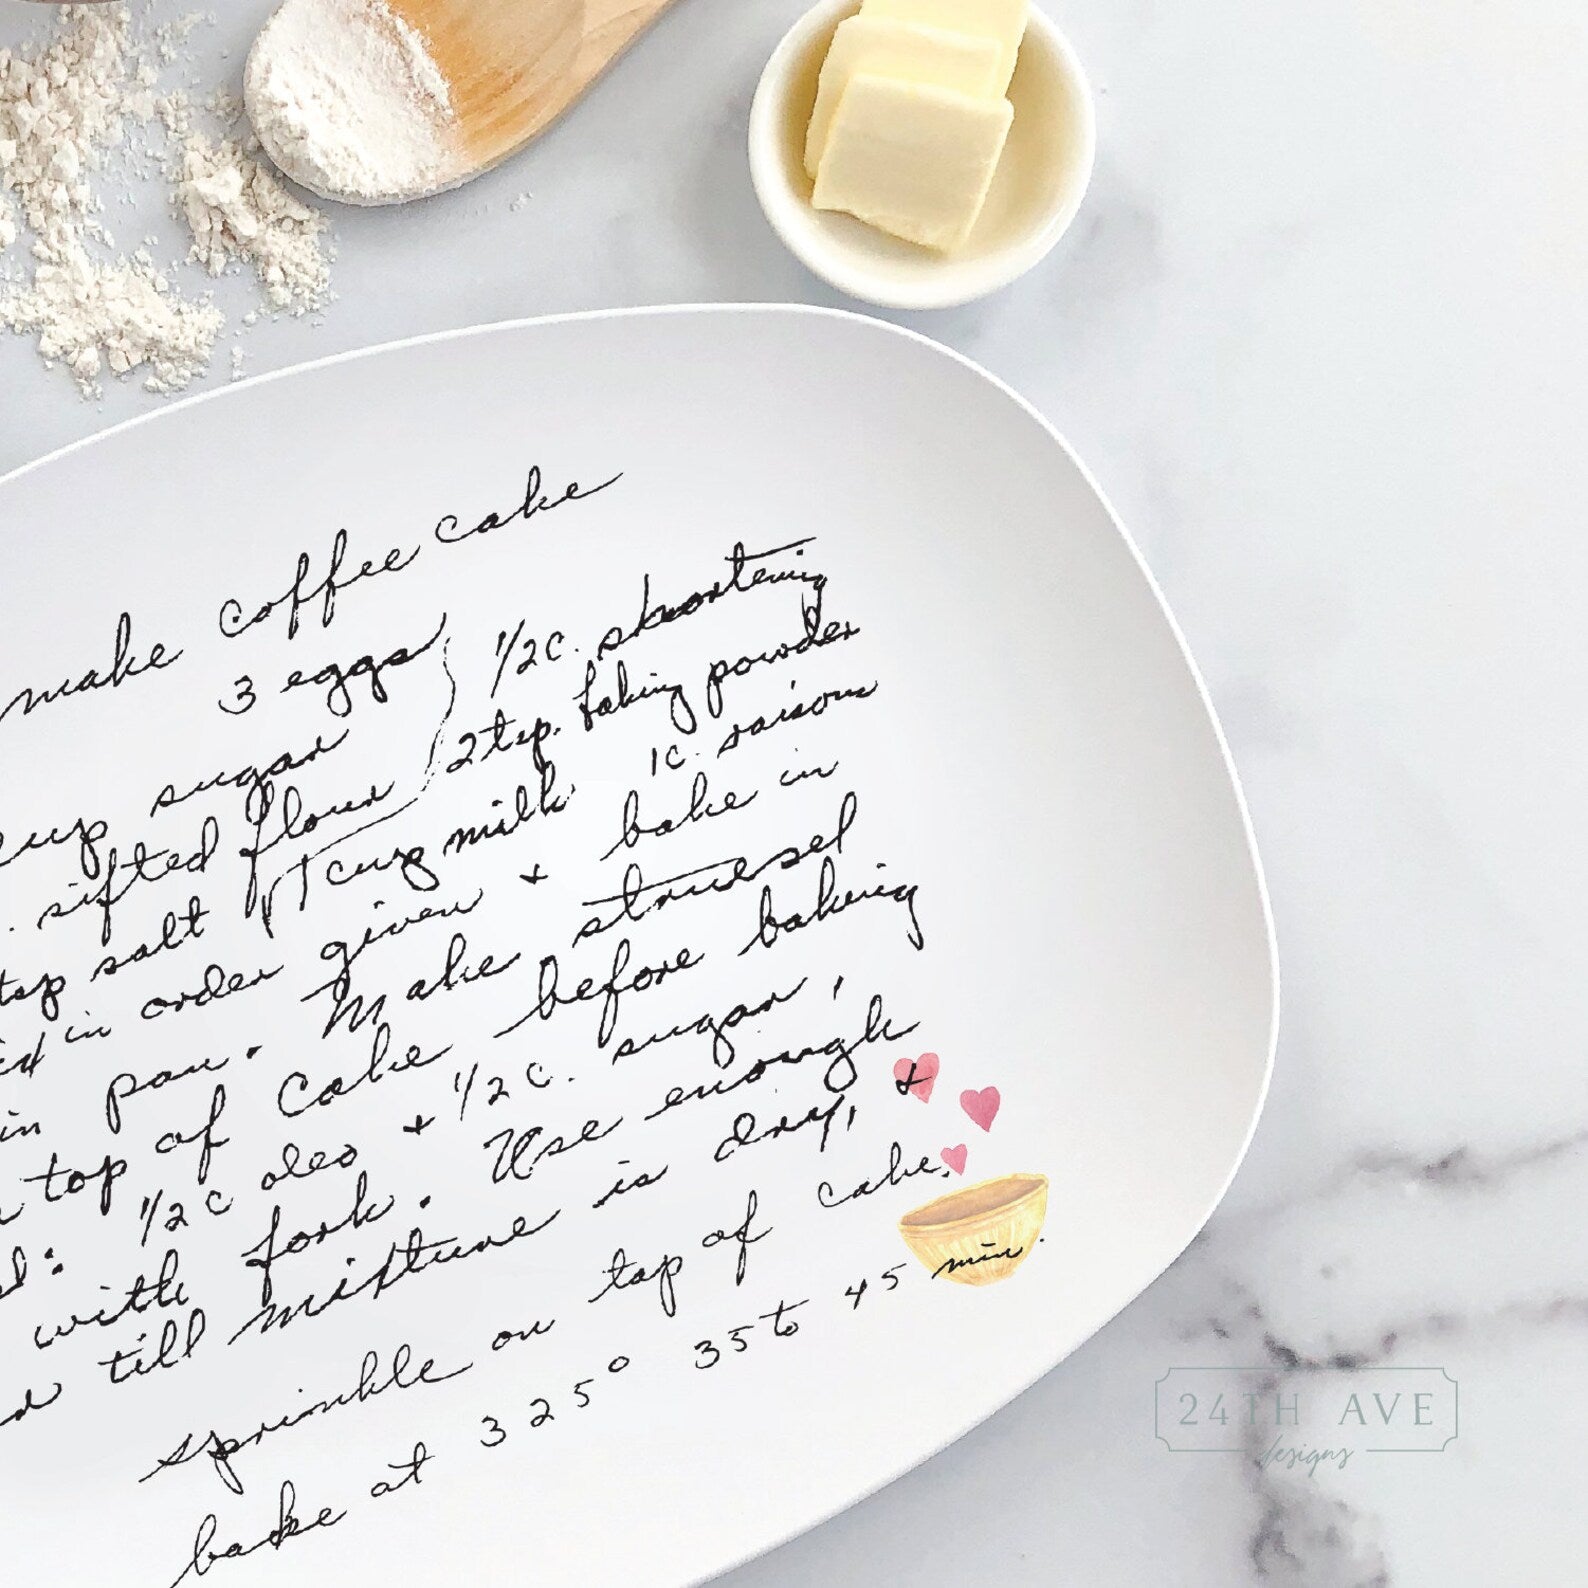 make coffee cake
3 eggs 1/2 c. shortening
cup sugar 2 tsp. baking powder
sifted flour 1 c. raisons
tsp salt 1 cup milk
in order given + bake in
in pan. Make struesel
top of cake before baking
1/2 c oleo + 1/2 c. sugar,
with fork. Use enough
till mixture is dry, +
sprinkle on top of cake.
bake at 325° 35 to 45 min.
24TH AVE
designs